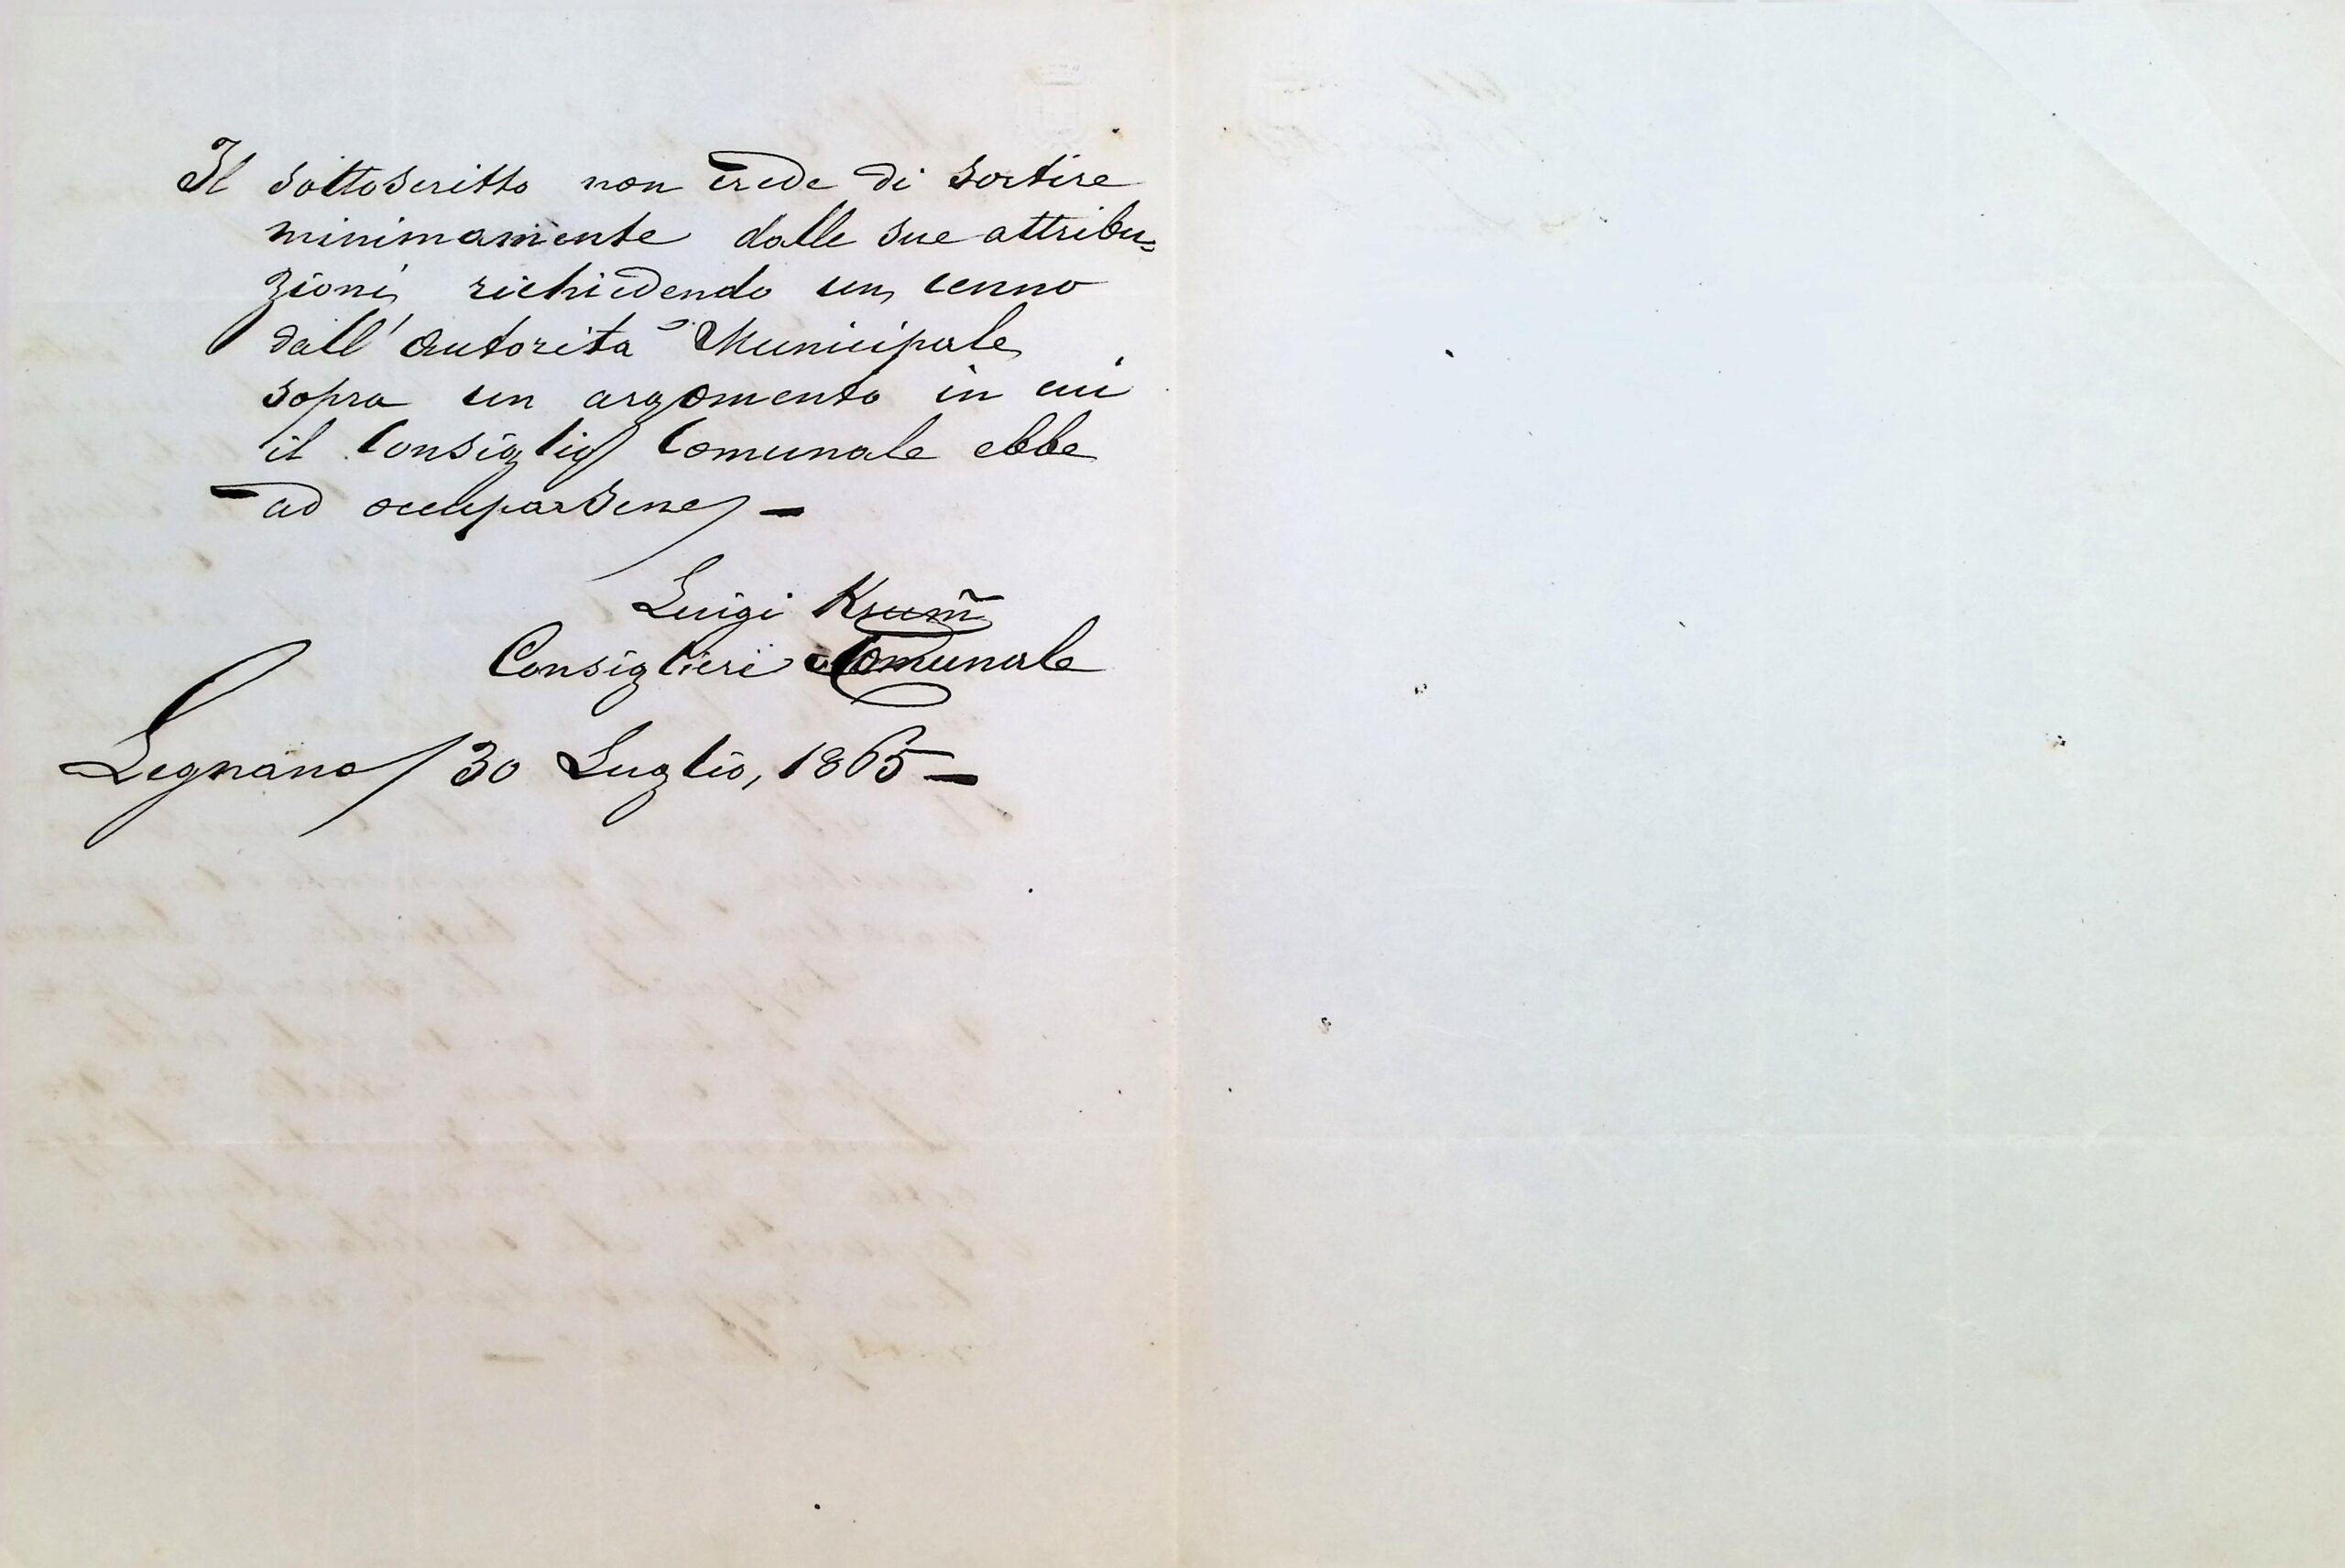 Il sottoscritto non crede di sortire
minimamente dalle sue attribu=
zioni, richiedendo un cenno
dall'autorità Municipale
sopra un argomento in cui
il Consiglio Comunale ebbe
ad occuparsene, —
Luigi Krum̃
Consiglieri Comunale
Legnano / 30 Luglio, 1865 —